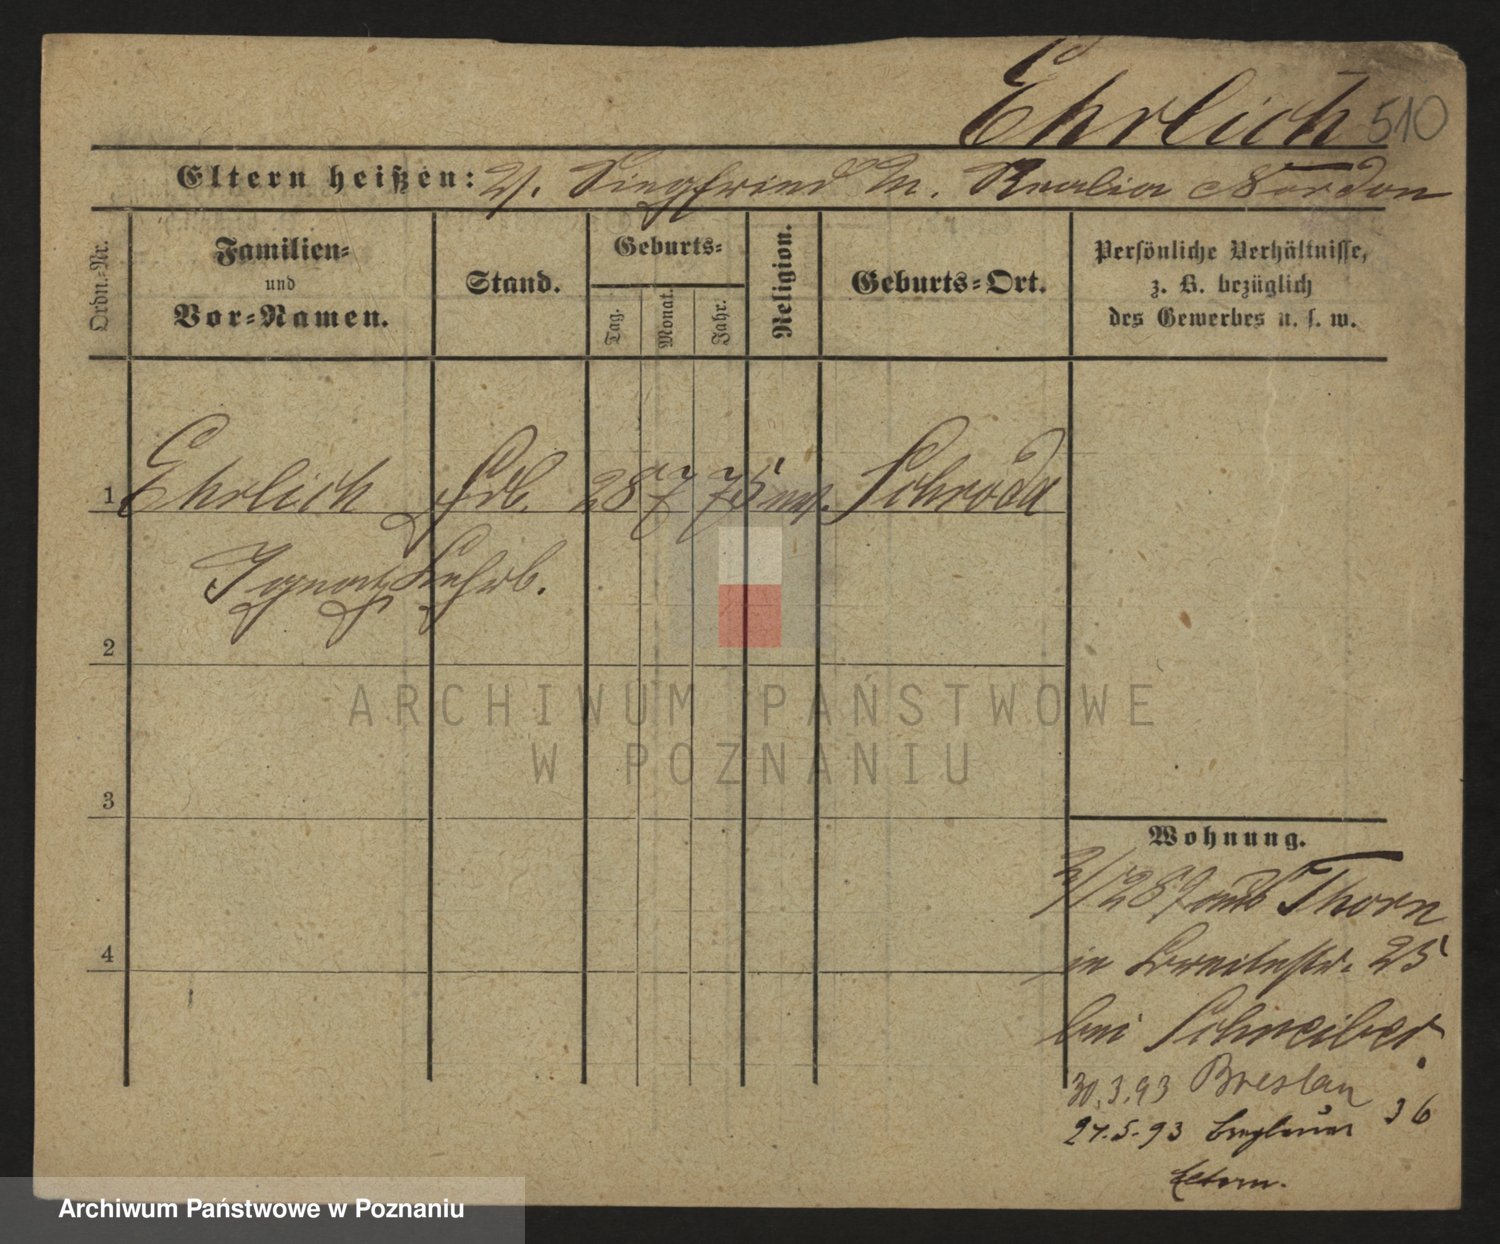 Ehrlich 510
Eltern heißen: V. Siegfried M. Rosalia Nordon
Ordn.-Nr.
Familien-
und
Vor-Namen.
Stand.
Geburts-
Tag.
Monat.
Jahr.
Religion.
Geburts-Ort.
Persönliche Verhältnisse,
z. B. bezüglich
des Gewerbes u. s. w.
1 Ehrlich 28 7 75 mos. Schroda
Ignatz
2
3
4
Wohnung.
89 aus Thorn
in Breitestr. 25
bei Schreiber
30.3.93 Breslau
27.5.93 Breslauer 36
Eltern.
ARCHIWUM PAŃSTWOWE
W POZNANIU
Archiwum Państwowe w Poznaniu